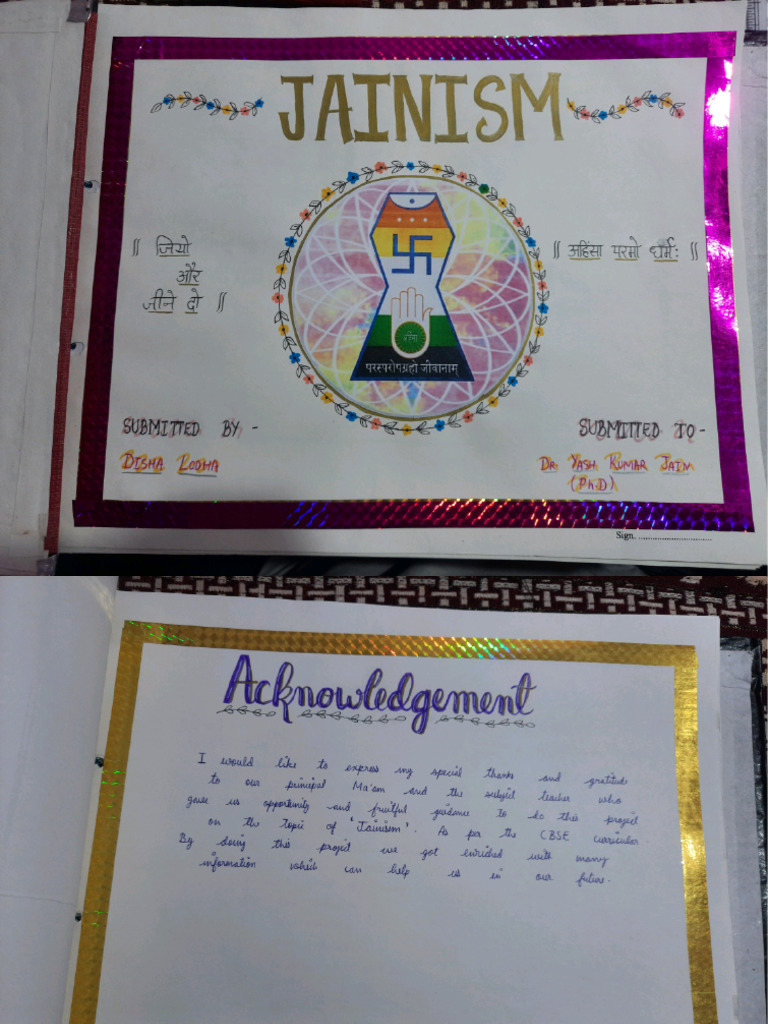 JAINISM
|| जियो
और
जीने दो ||
|| अहिंसा परमो धर्मः ||
अहिंसा
परस्परोपग्रहो जीवानाम्
SUBMITTED BY -
DISHA LODHA
SUBMITTED TO -
DR. YASH KUMAR JAIN
(Ph.D)
Sign. ..............................
Acknowledgement
I would like to express my special thanks and gratitude
to our principal Ma'am and the subject teacher who
gave us opportunity and fruitful guidance to do this project
on the topic of 'Jainism'. As per the CBSE curricular.
By doing this project we got enriched with many
information which can help us in our future.